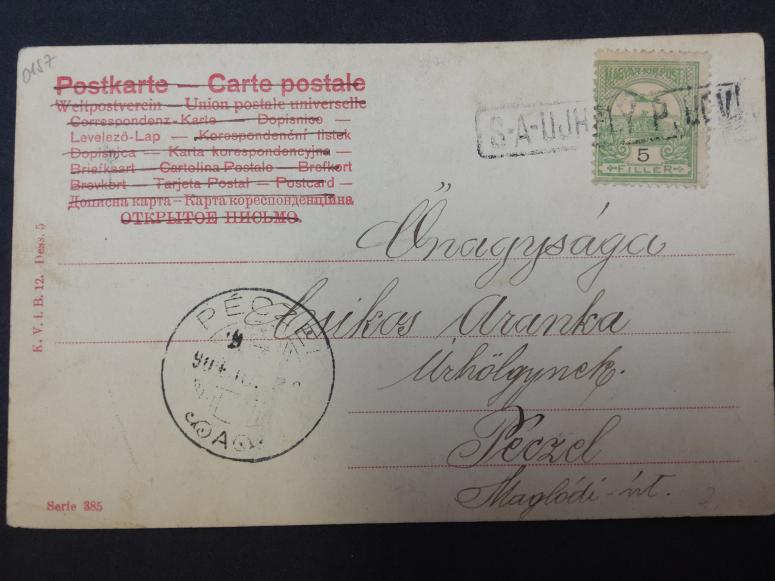 0157
Postkarte — Carte postale
Weltpostverein — Union postale universelle
Correspondenz-Karte — Dopisnice —
Levelező-Lap — Korespondenční lístek
Dopisnica — Karta korespondencyjna —
Briefkaart — Cartolina Postale — Brefkort
Brevkort — Tarjeta Postal — Postcard —
Дописна карта — Карта кореспонденційна
ОТКРЫТОЕ ПИСЬМО.
MAGYAR KIR. POSTA
5
FILLÉR
S-A-UJHELY P.UDV
Őnagysága
Csikos Aranka
Úrhölgynek.
Péczel
Maglódi-út.
PÉCZEL
K. V. i. B. 12. Dess. 5
Serie 385